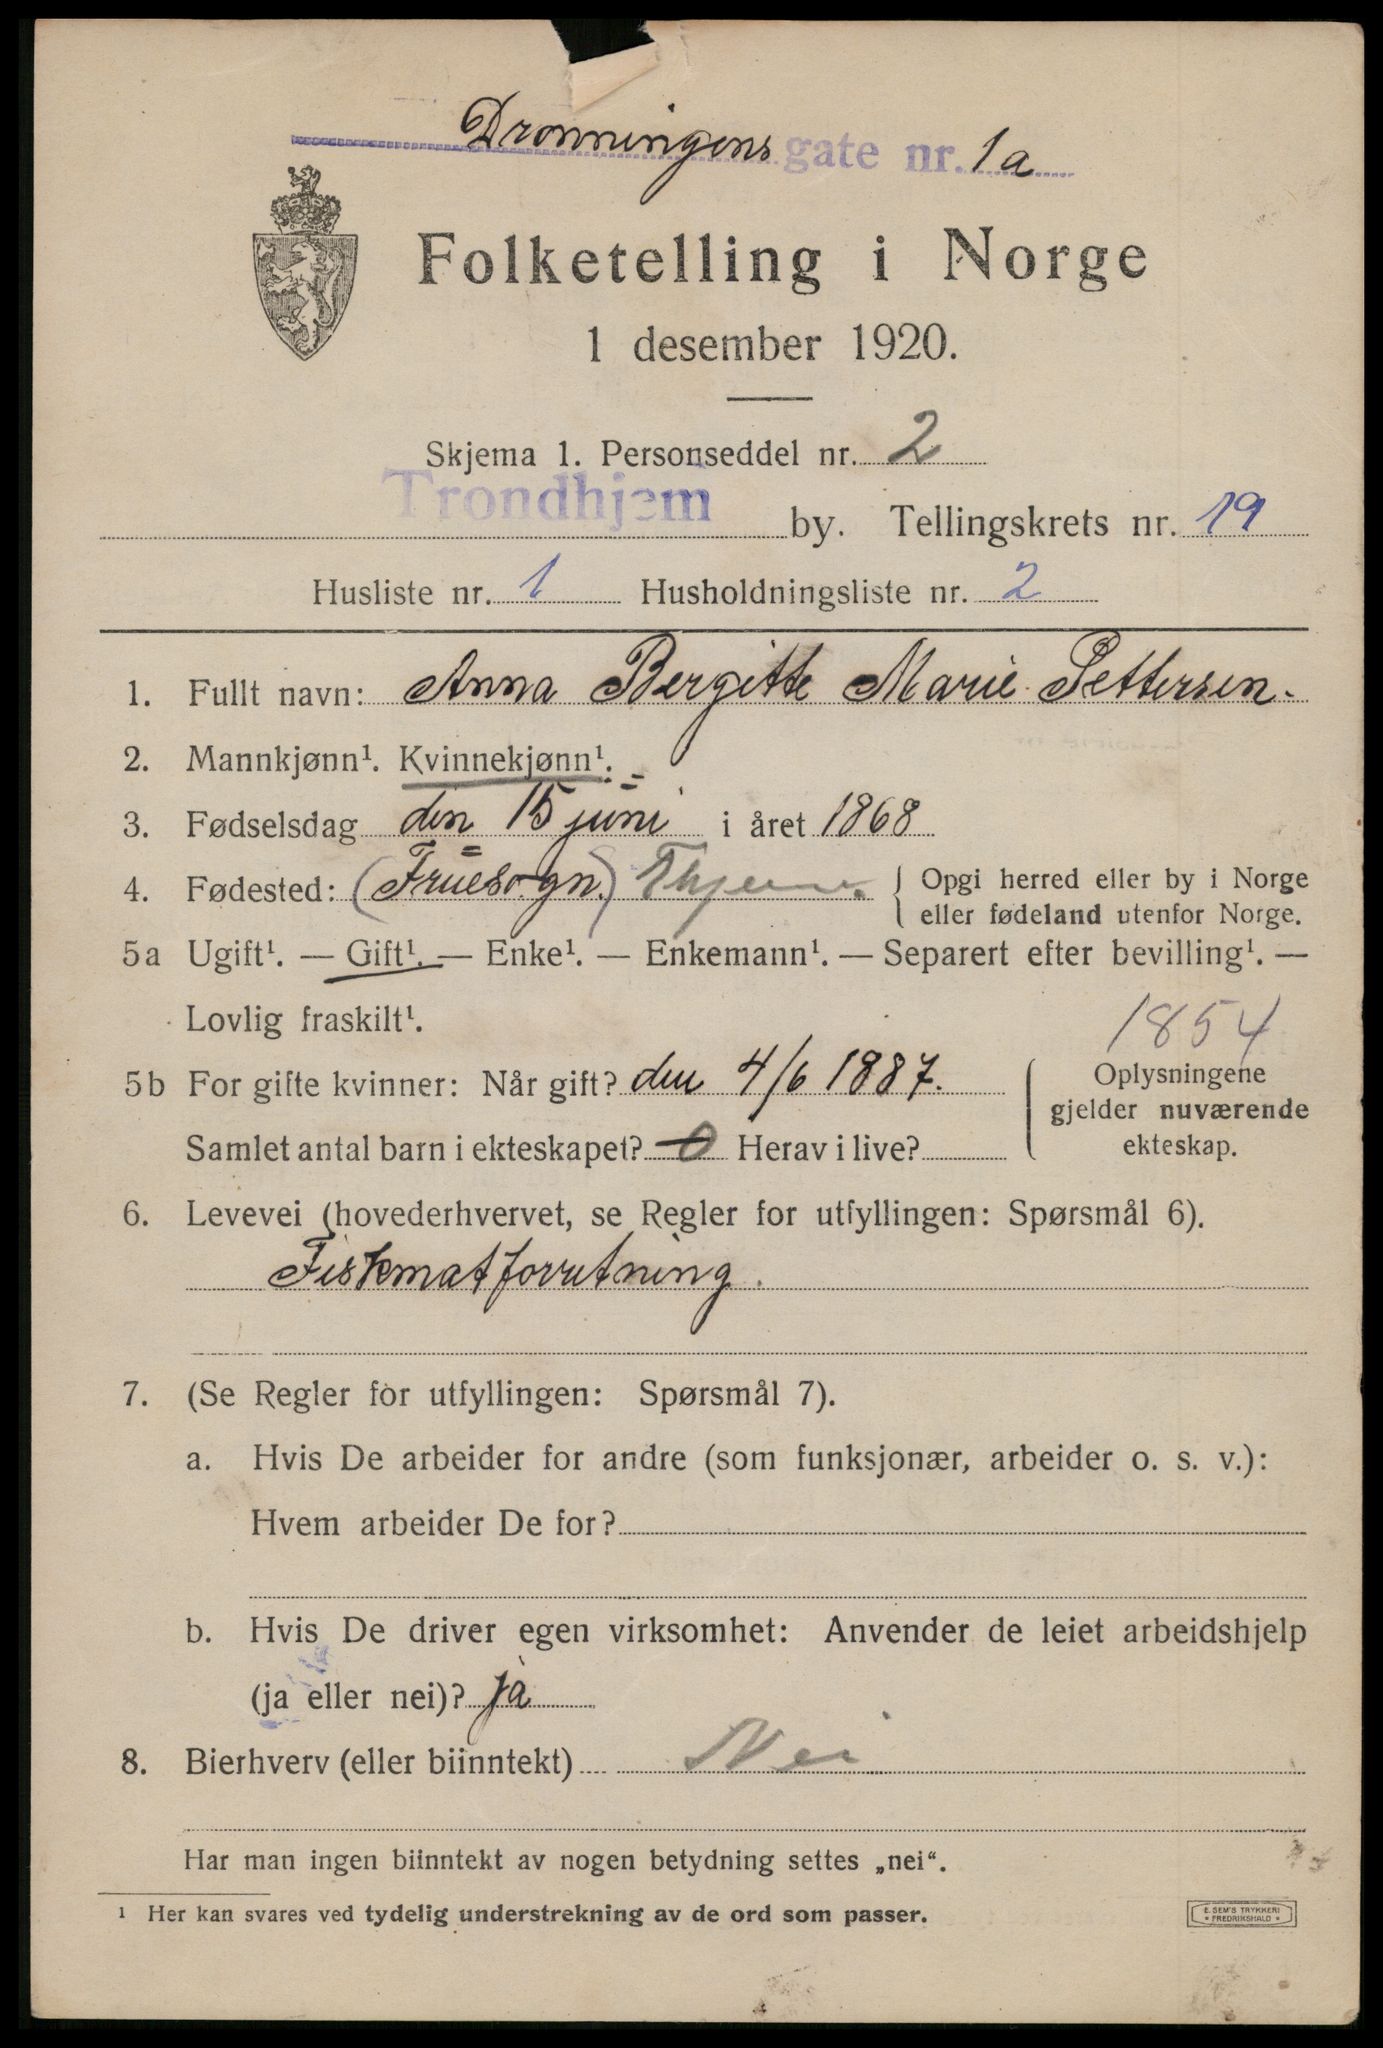 Dronningens gate nr. 1a
Folketelling i Norge
1 desember 1920.
Skjema 1. Personseddel nr. 2
Trondhjem by. Tellingskrets nr. 19
Husliste nr. 1 Husholdningsliste nr. 2
1. Fullt navn: Anna Bergitte Marie Pettersen.
2. Mannkjønn¹. Kvinnekjønn¹.
3. Fødselsdag den 15 juni i året 1868
4. Fødested: (Fruesogn.) Thjem. { Opgi herred eller by i Norge
eller fødeland utenfor Norge.
5a Ugift¹. — Gift¹. — Enke¹. — Enkemann¹. — Separert efter bevilling¹. —
Lovlig fraskilt¹.
1854
5b For gifte kvinner: Når gift? den 4/6 1887.
Samlet antal barn i ekteskapet? 0 Herav i live?
Oplysningene
gjelder nuværende
ekteskap.
6. Levevei (hovederhvervet, se Regler for utfyllingen: Spørsmål 6).
Fiskmatforretning.
7. (Se Regler for utfyllingen: Spørsmål 7).
a. Hvis De arbeider for andre (som funksjonær, arbeider o. s. v.):
Hvem arbeider De for?
b. Hvis De driver egen virksomhet: Anvender de leiet arbeidshjelp
(ja eller nei)? ja
8. Bierhverv (eller biinntekt) Nei
Har man ingen biinntekt av nogen betydning settes „nei“.
¹ Her kan svares ved tydelig understrekning av de ord som passer.
E. SEM'S TRYKKERI
* FREDRIKSHALD *